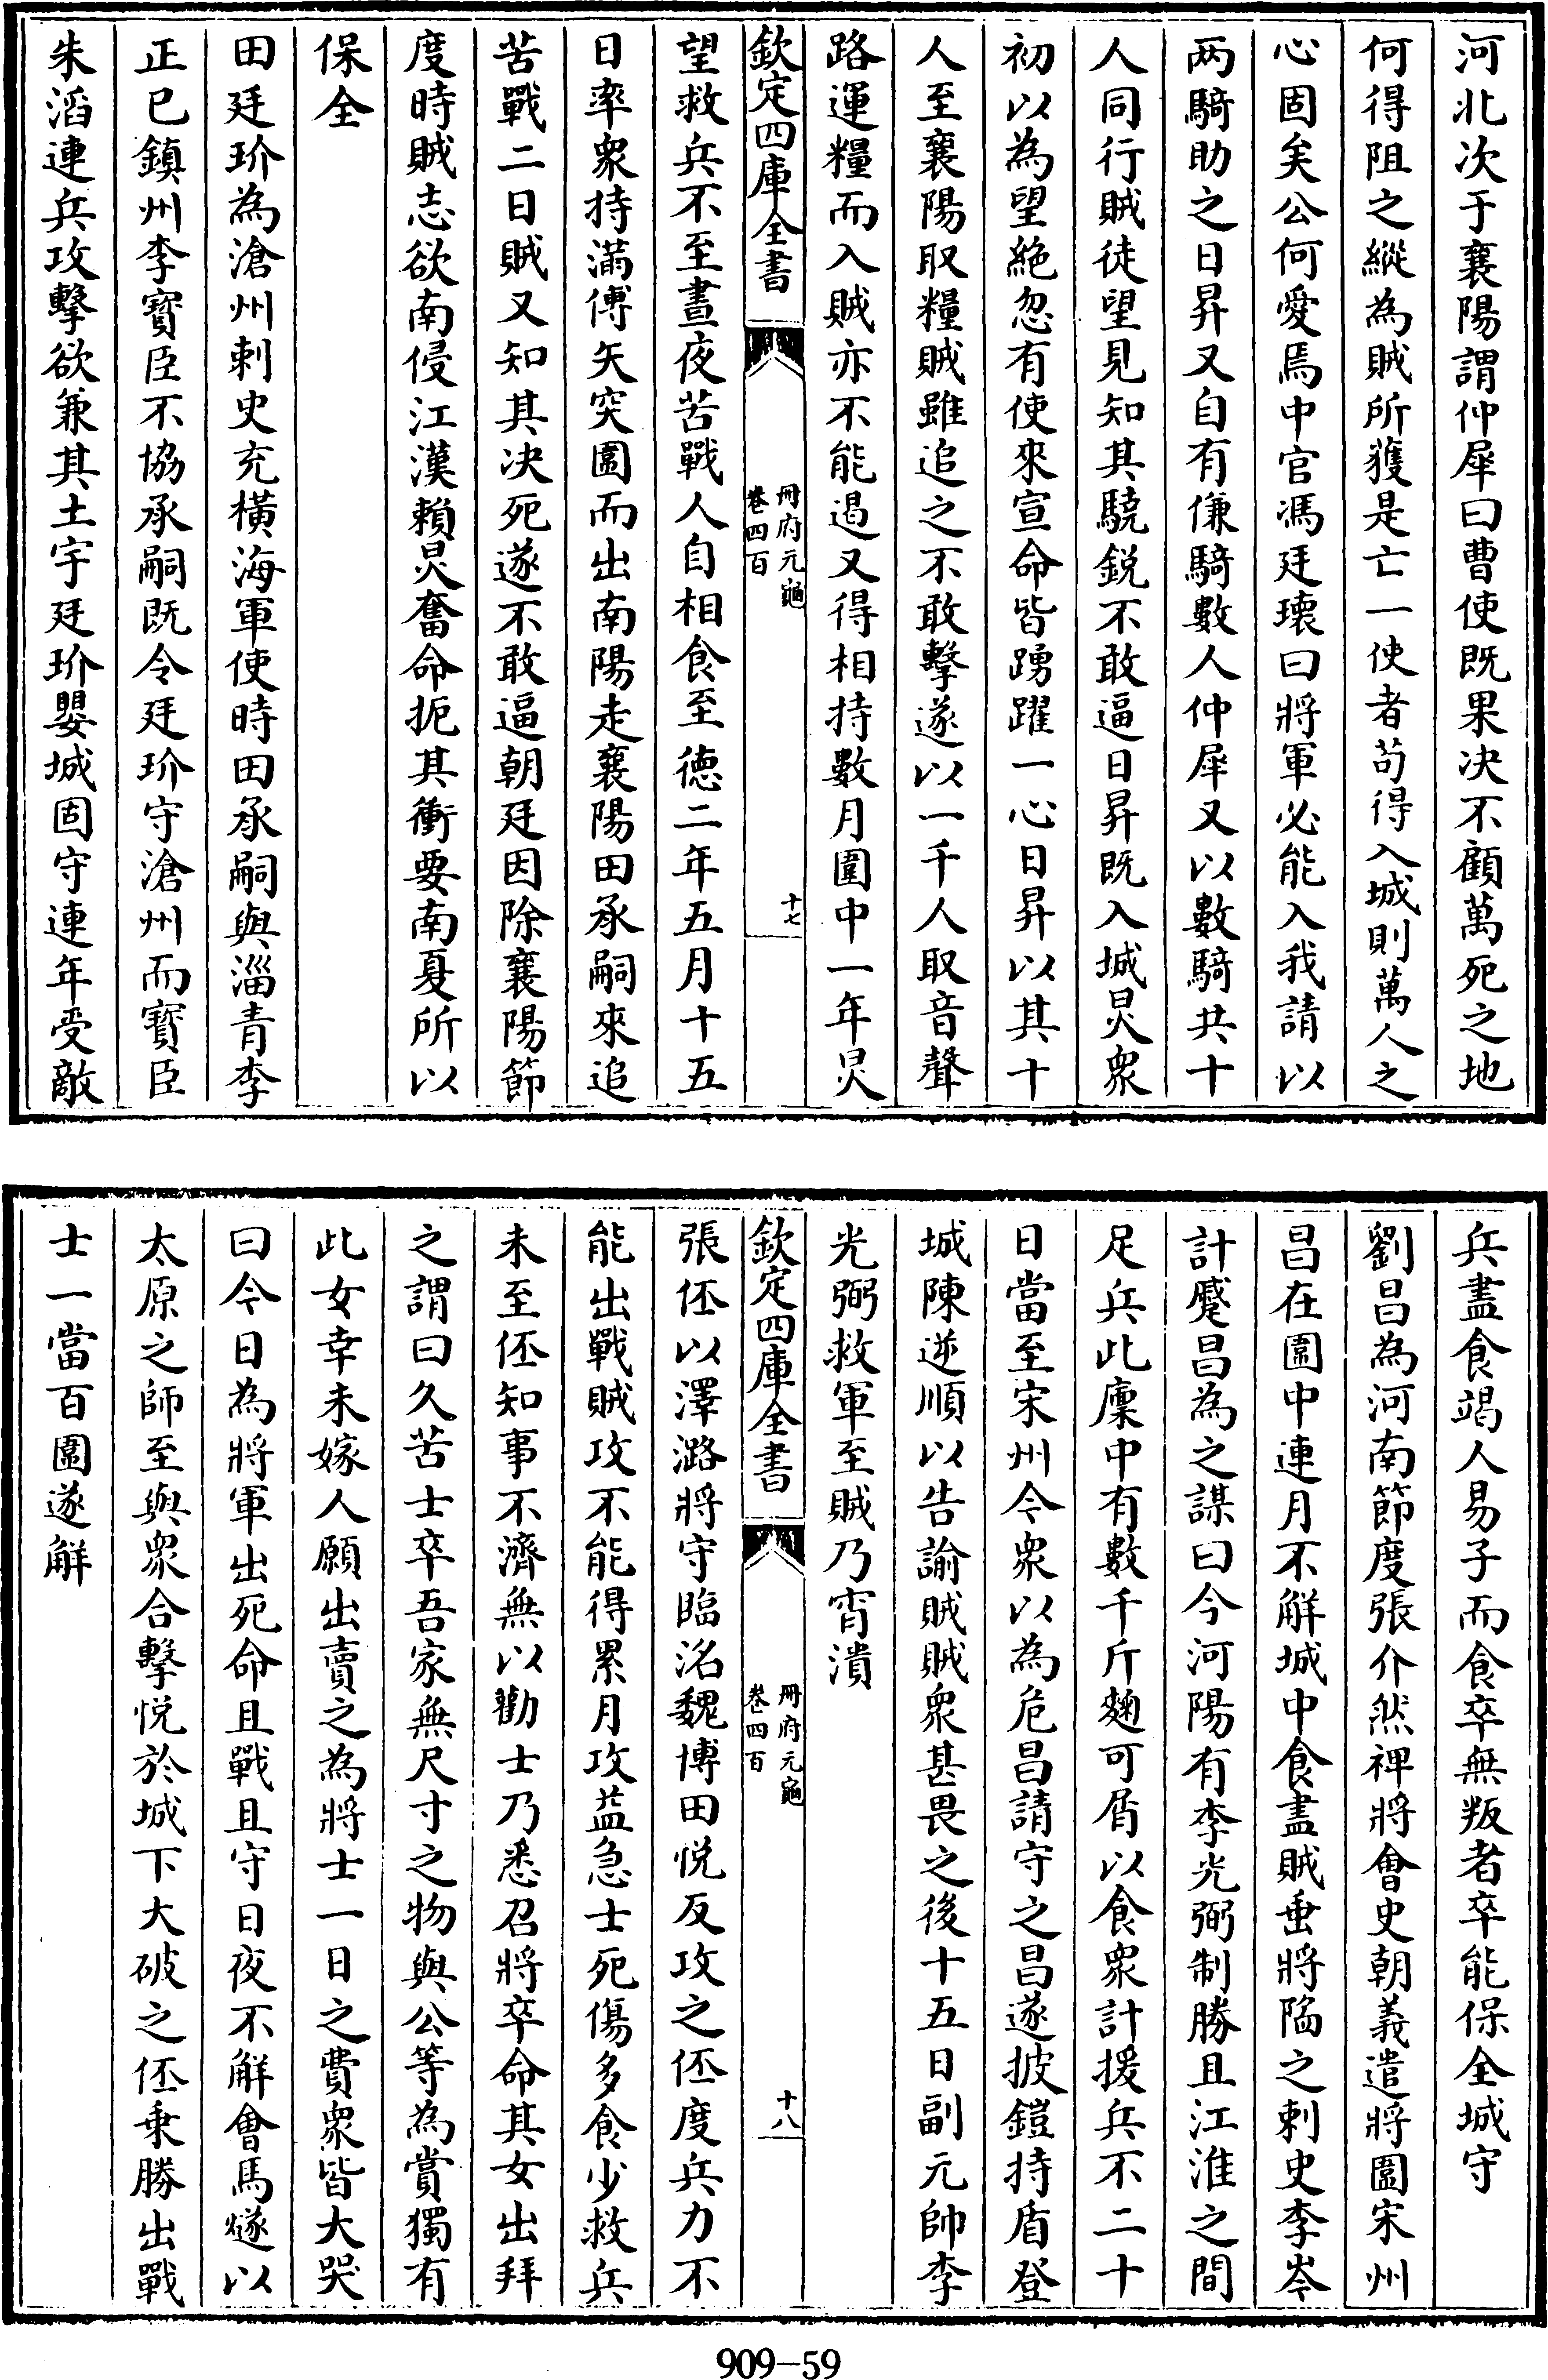 河北次于襄陽謂仲犀曰曹使既果决不顧萬死之地
何得阻之縱為賊所獲是亡一使者苟得入城則萬人之
心固矣公何愛焉中官馮廷瓌曰將軍必能入我請以
两騎助之日昇又自有傔騎數人仲犀又以數騎共十
人同行賊徒望見知其驍鋭不敢逼日昇既入城炅衆
初以為望絶忽有使來宣命皆踴躍一心日昇以其十
人至襄陽取糧賊雖追之不敢擊遂以一千人取音聲
路運糧而入賊亦不能遏又得相持數月圍中一年炅
欽定四庫全書
冊府元龜
卷四百
十七
望救兵不至晝夜苦戰人自相食至徳二年五月十五
日率衆持滿傅矢突圍而出南陽走襄陽田承嗣來追
苦戰二日賊又知其决死遂不敢逼朝廷因除襄陽節
度時賊志欲南侵江漢賴炅奮命扼其衝要南夏所以
保全
田廷玠為滄州刺史充橫海軍使時田承嗣與淄青李
正已鎮州李寳臣不協承嗣既令廷玠守滄州而寳臣
朱滔連兵攻擊欲兼其土宇廷玠嬰城固守連年受敵
兵盡食竭人易子而食卒無叛者卒能保全城守
劉昌為河南節度張介然禆將會史朝義遣將圍宋州
昌在圍中連月不解城中食盡賊垂將陷之刺史李岑
計蹙昌為之謀曰今河陽有李光弼制勝且江淮之間
足兵此廩中有數千斤麴可屑以食衆計援兵不二十
日當至宋州令衆以為危昌請守之昌遂披鎧持盾登
城陳逆順以告諭賊賊衆甚畏之後十五日副元帥李
光弼救軍至賊乃宵潰
欽定四庫全書
冊府元龜
卷四百
十八
張伾以澤潞將守臨洺魏博田悦反攻之伾度兵力不
能出戰賊攻不能得累月攻益急士死傷多食少救兵
未至伾知事不濟無以勸士乃悉召將卒命其女出拜
之謂曰久苦士卒吾家無尺寸之物與公等為賞獨有
此女幸未嫁人願出賣之為將士一日之費衆皆大哭
曰今日為將軍出死命且戰且守日夜不解會馬燧以
太原之師至與衆合擊悦於城下大破之伾乗勝出戰
士一當百圍遂解
909-59